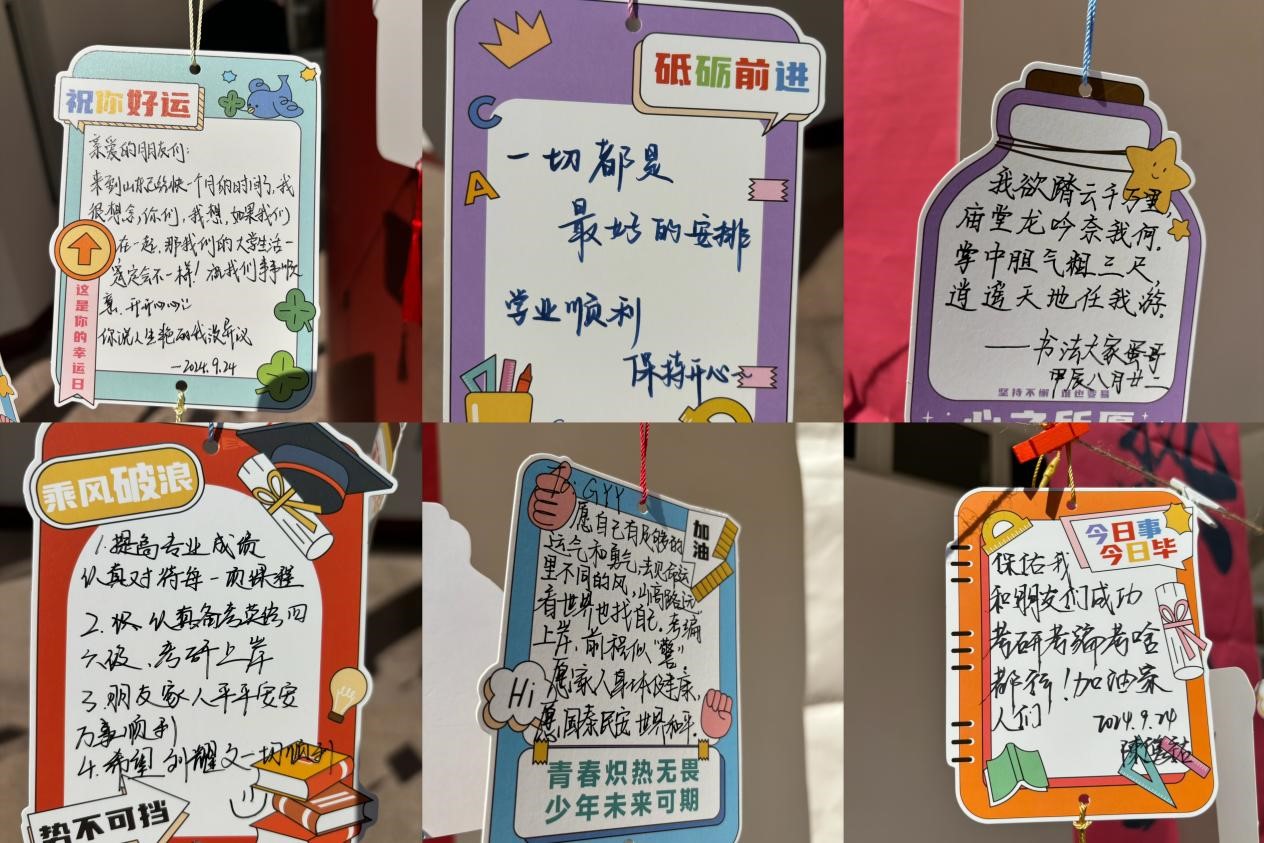 祝你好运
亲爱的朋友们:
来到山东已经快一个月的时间了,我
很想念你们,我想,如果我们
在一起,那我们的大学生活一
定会不一样!祝我们事事顺
意,开开心心
你说人生艳丽我没异议
—2024.9.24
这是你的幸运日
砥砺前进
C
A
一切都是
最好的安排
学业顺利
保持开心~
我欲踏云千万里,
庙堂龙吟奈我何.
掌中胆气粗三尺,
逍遥天地任我游.
——书法大家蛋哥
甲辰八月廿二
坚持不懈 谁也要赢
心之所愿
乘风破浪
1.提高专业成绩
认真对待每一项课程
2.认真备考英语四
六级、考研上岸
3.朋友家人平平安安
万事顺利
4.希望刘耀文一切顺利
势不可挡
To:GYY
加油
愿自己有足够的
运气和勇气,去见
里不同的风,山高路远
看世界也找自己.考编
上岸,前程似"警"
愿家人身体健康,
愿国泰民安 世界和平.
Hi
青春炽热无畏
少年未来可期
今日事
今日毕
保佑我
和朋友们成功
考研考编考啥
都行!加油家
人们
2024.9.24